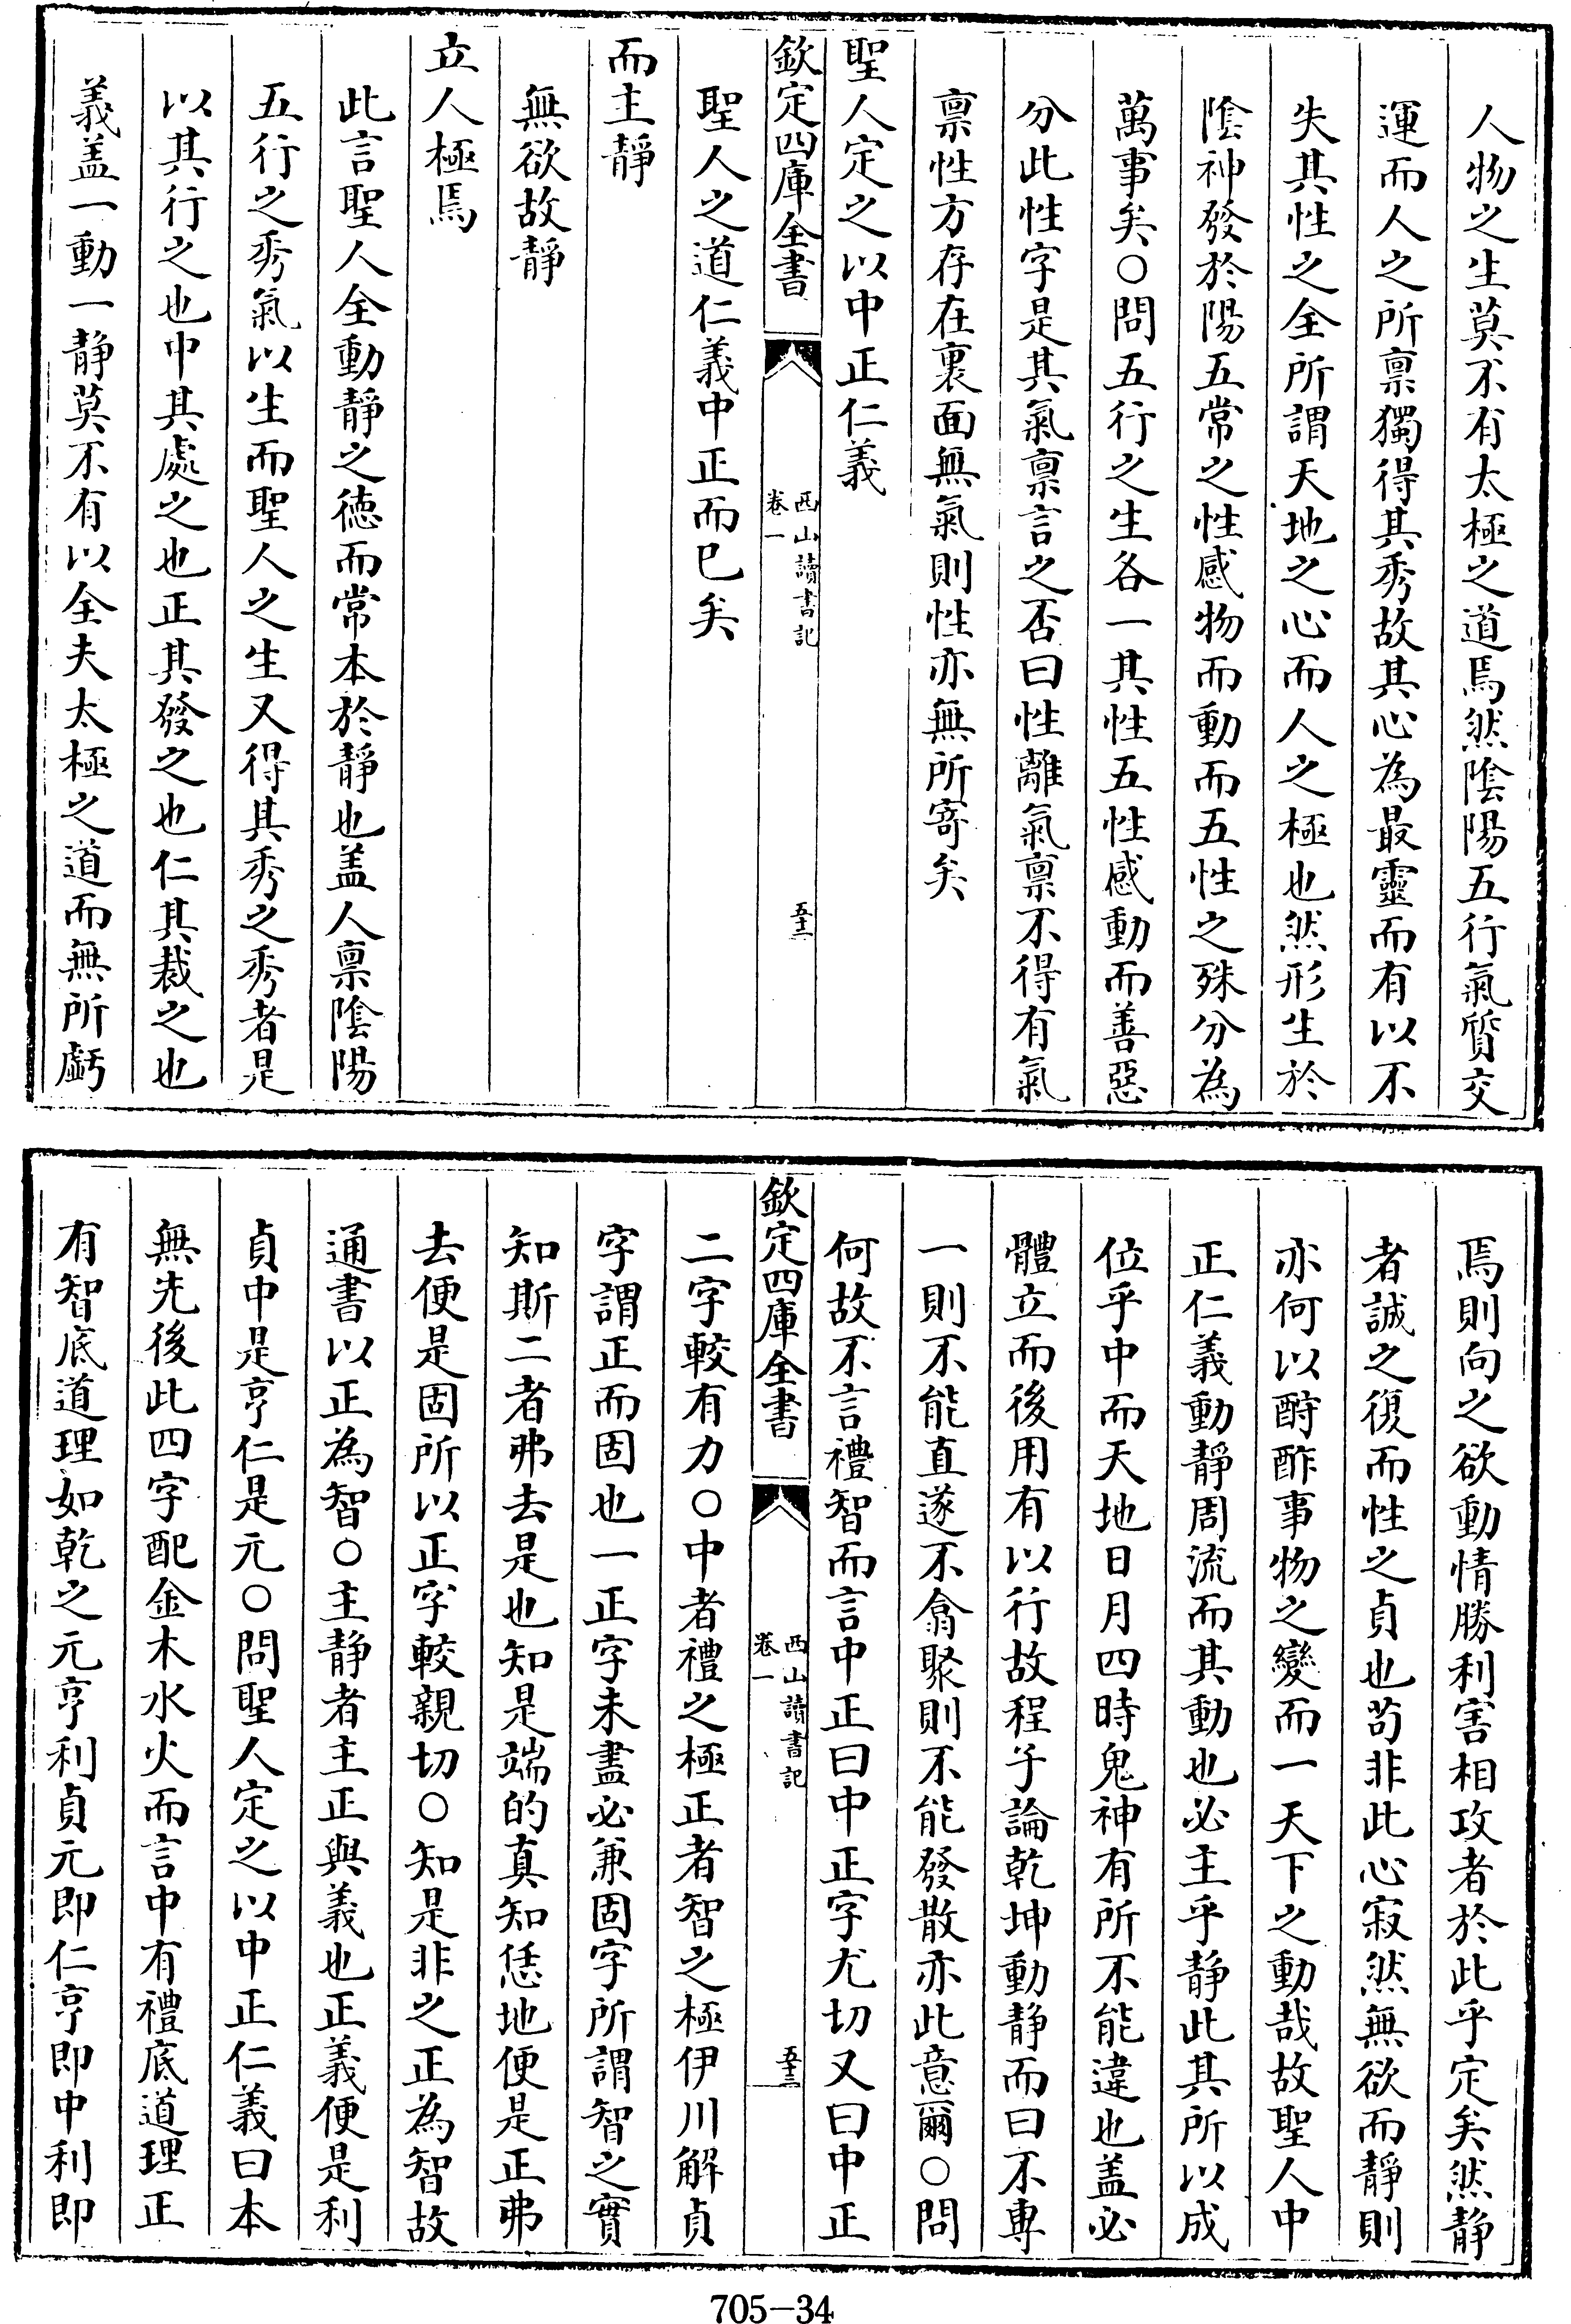 人物之生莫不有太極之道焉然陰陽五行氣質交
運而人之所禀獨得其秀故其心為最靈而有以不
失其性之全所謂天地之心而人之極也然形生於
陰神發於陽五常之性感物而動而五性之殊分為
萬事矣○問五行之生各一其性五性感動而善惡
分此性字是其氣禀言之否曰性離氣禀不得有氣
禀性方存在裏面無氣則性亦無所寄矣
聖人定之以中正仁義
欽定四庫全書
西山讀書記
卷一
五十二
聖人之道仁義中正而已矣
而主靜
無欲故靜
立人極焉
此言聖人全動靜之徳而常本於靜也盖人禀陰陽
五行之秀氣以生而聖人之生又得其秀之秀者是
以其行之也中其處之也正其發之也仁其裁之也
義盖一動一靜莫不有以全夫太極之道而無所虧
焉則向之欲動情勝利害相攻者於此乎定矣然靜
者誠之復而性之貞也苟非此心寂然無欲而靜則
亦何以酧酢事物之變而一天下之動哉故聖人中
正仁義動靜周流而其動也必主乎靜此其所以成
位乎中而天地日月四時鬼神有所不能違也盖必
體立而後用有以行故程子論乾坤動靜而曰不專
一則不能直遂不翕聚則不能發散亦此意爾○問
何故不言禮智而言中正曰中正字尤切又曰中正
欽定四庫全書
西山讀書記
卷一
五十三
二字較有力○中者禮之極正者智之極伊川解貞
字謂正而固也一正字未盡必兼固字所謂智之實
知斯二者弗去是也知是端的真知恁地便是正弗
去便是固所以正字較親切○知是非之正為智故
通書以正為智○主靜者主正與義也正義便是利
貞中是亨仁是元○問聖人定之以中正仁義曰本
無先後此四字配金木水火而言中有禮底道理正
有智底道理如乾之元亨利貞元即仁亨即中利即
705-34